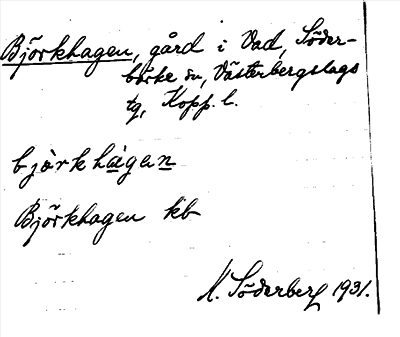 Björkhagen, gård i Vad, Söder-
bärke sn, Västerbergslags
tg, Kopp. l.
bjòrkhàgen
Björkhagen kb
N. Söderberg 1931.